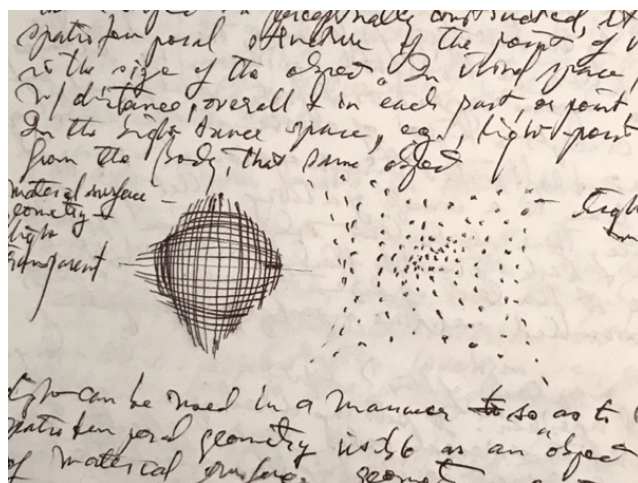 is perceptually constructed, it
spatiotemporal structure of the point of v
is the size of the object. In visual space,
w/ distance, overall & in each part, or point
In the light space, e.g., light-point
from the body, that same object
material surface
geometry
light
transparent
light
light can be used in a manner so as to
spatiotemporal geometry visible as an "object
of material surface geomet